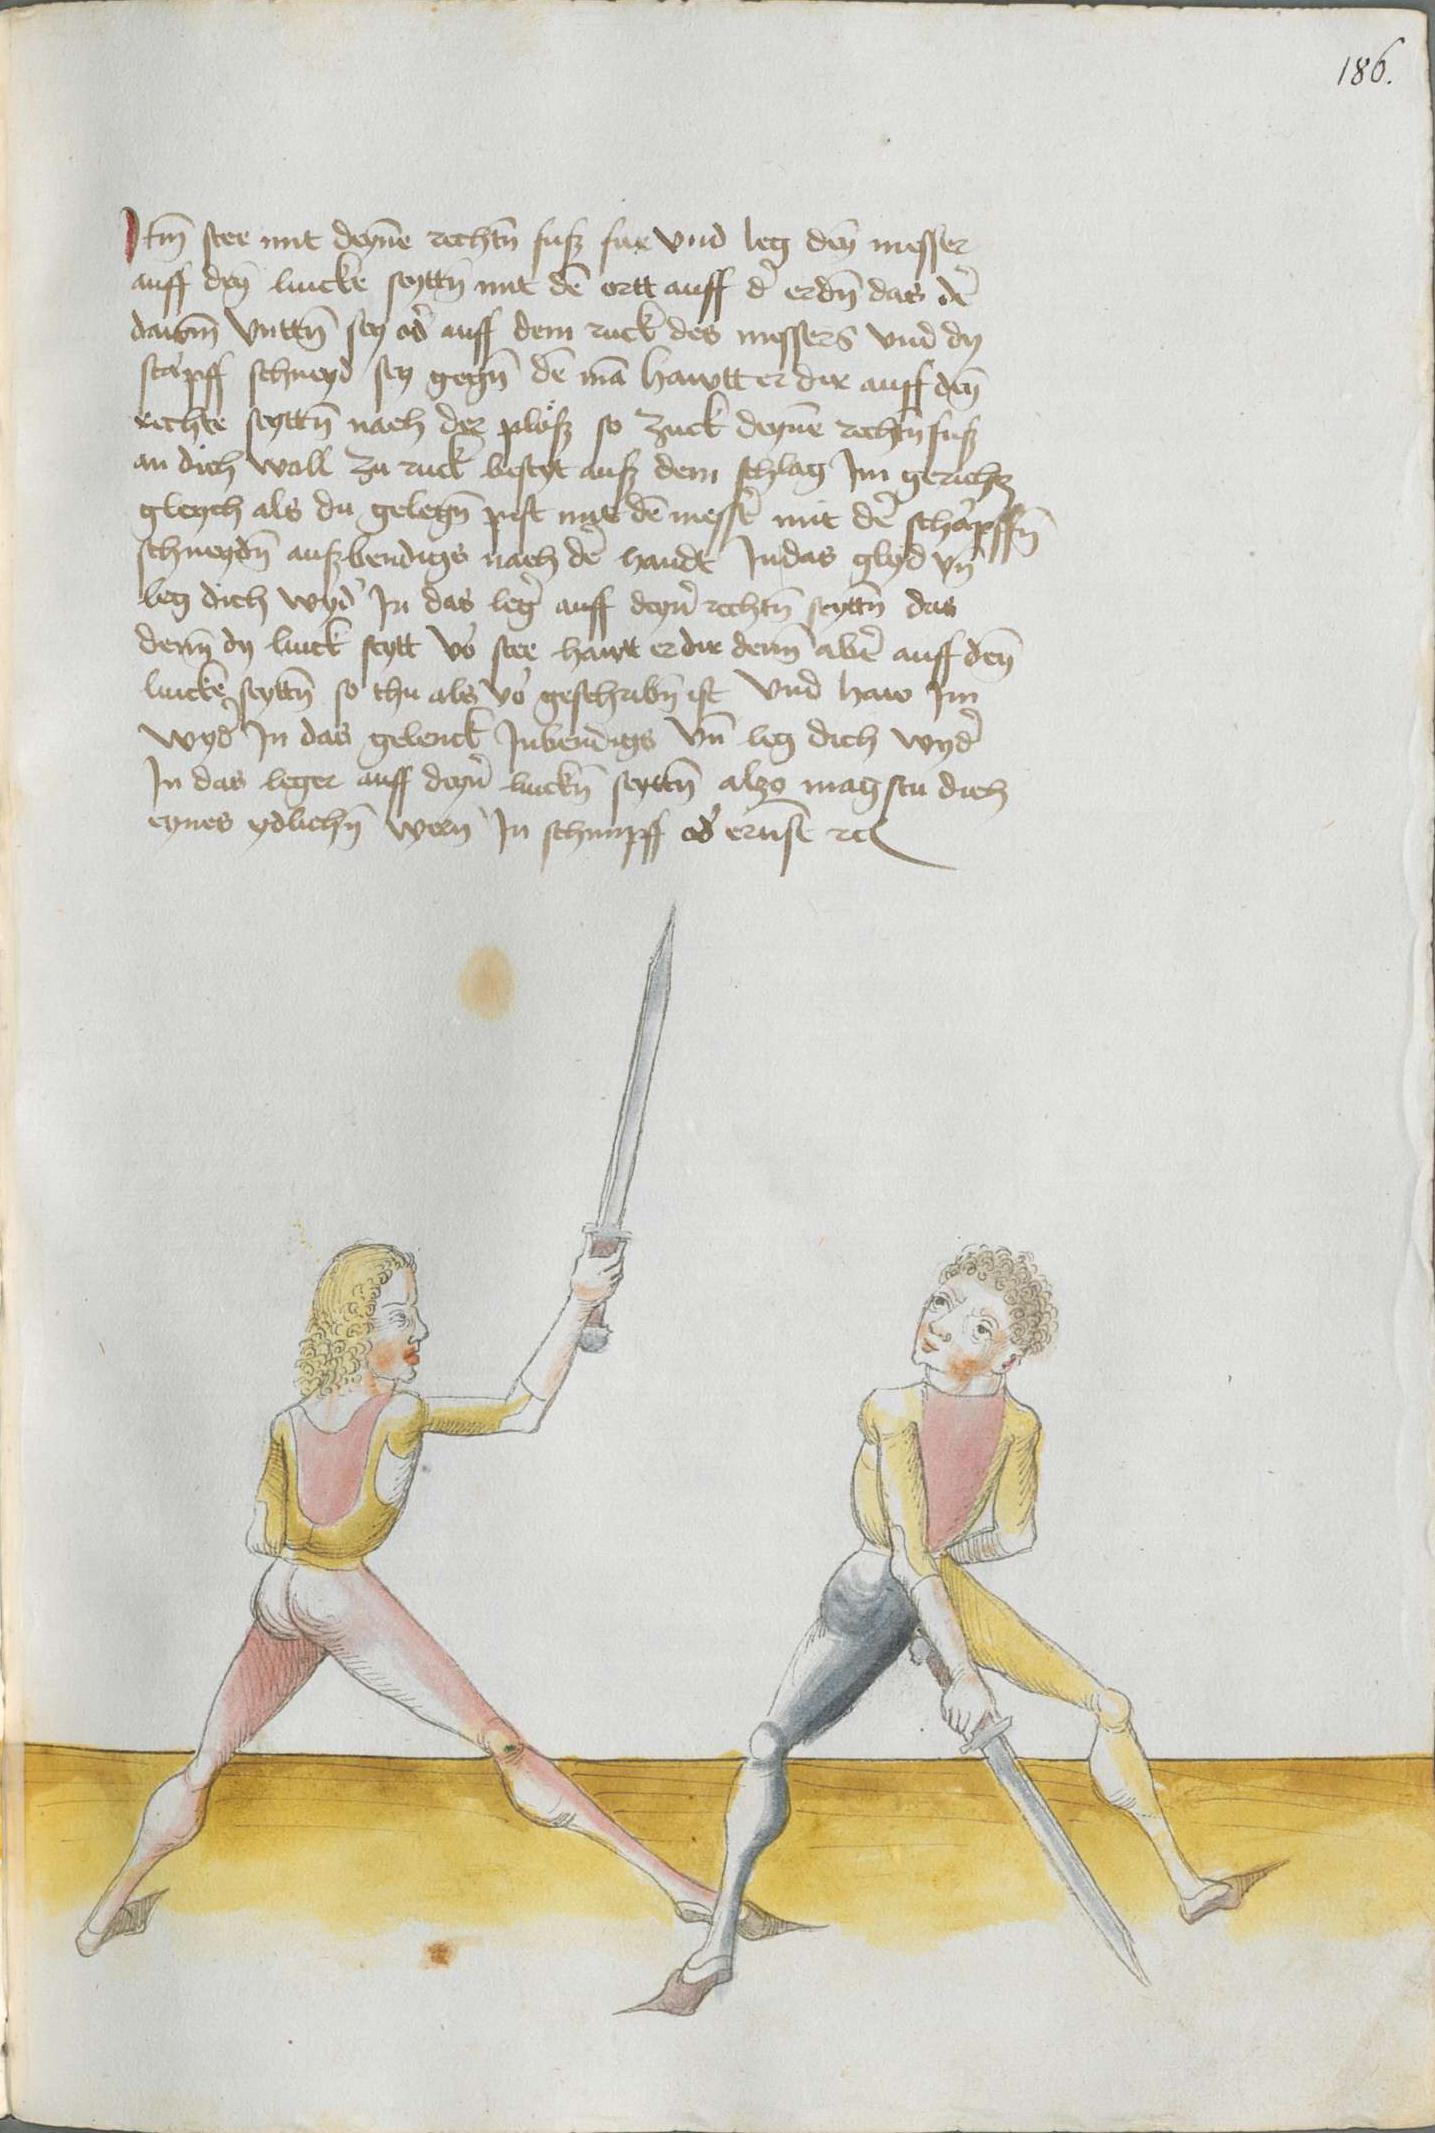 186.
Itm̄ stee mit deyne᷑ rechtn̄ fuß fur vnd leg deȳ messer
auff deȳ lincke seyttn̄ mit de᷑ ortt auff d᷑ erdn̄ das d᷑
dawm̄ vnttn̄ sey od᷑ auff dem ruck des messers vnd dy
scārpff schneyd sey gegn̄ de᷑ mā Hawtt er dir auff deȳ
rechte seyttn̄ nach der plöß so zuck deyne᷑ rechtn̄ fuß
an dich woll zu ruck beseyt auß dem schlag Im gerichcz
gleych als du gelegn̄ pist mit de᷑ mess᷑ mit de᷑ schārpffn̄
schneydn̄ außbendigs nach de᷑ handt In das glyd vn̄
leg dich wyd᷑ In das leg᷑ auff deyn᷑ rechtn̄ seyttn̄ das
denn̄ dy linck seytt vō stee hawt er dir denn̄ ab᷑ auff deȳ
lincke seyttn̄ so thu als vō geschribn̄ ist vnd haw Im
wyd᷑ In das gelenck Inbendigs vn̄ leg dich wyd᷑
In das leger auff deyn᷑ linckn̄ seyttn̄ alzo magstu dich
eynes ydlichn̄ wern̄ In schimpff od᷑ ernst rc